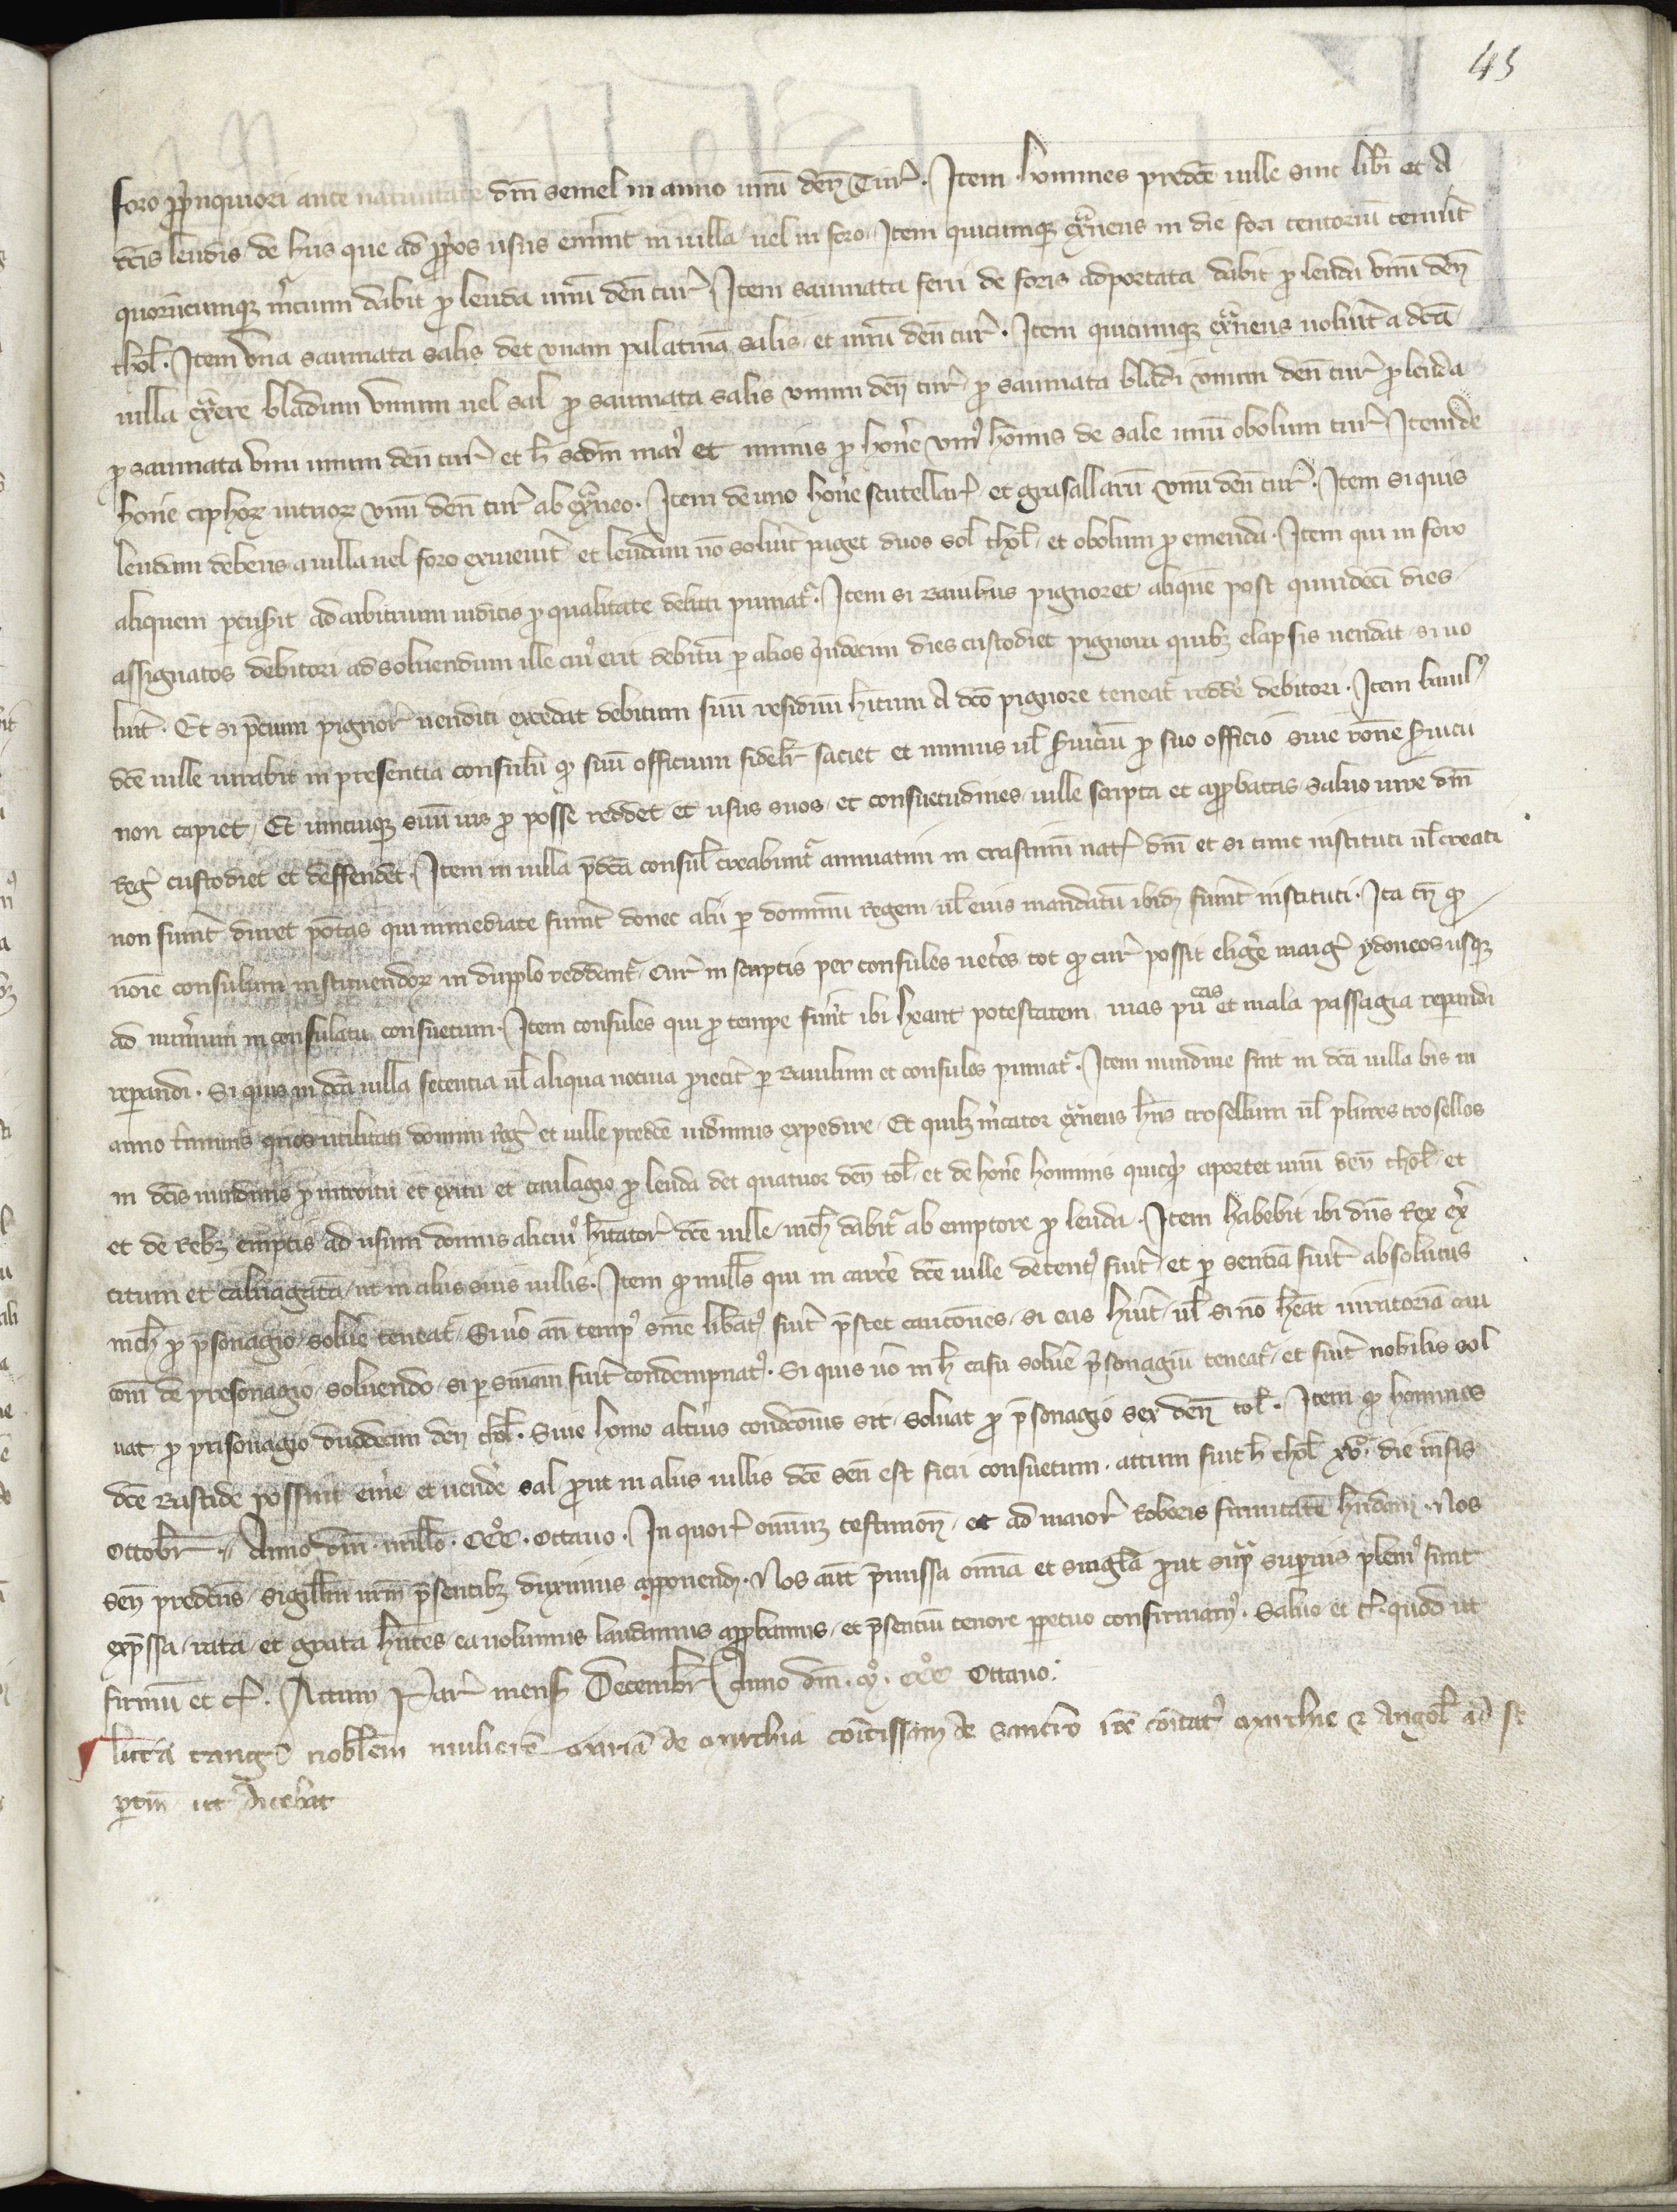 45
foro ppinquiori ante natiuitate dni semel in anno unu den Tur. Item homines predce uille sint libi et A
dcis leudis de hiis que ad ppos usus emint in uilla uel in foro. Item quicumque extneus in die fori tentoriu tenuit
quorucumque mcium dabit p leuda unu den tur. Item saumata ferri de foris adportata dabit p leuda unu den
thol. Item vna saumata salis det vnam palatina salis et unu den tur. Item quicumque extneus uoluit a dca
uilla extere bladum vinum uel sal p saumata salis vnum den tur p saumata bladi vnum den tur p leuda
p saumata vini unum den tur et h scdm mai et minus p hone vni homis de sale unu obolum tur Item de
hone ciphor uitreor vnu den tur ab extneo. Item de uno hone scutellar et grasallaru vnu den tur. Item si quis
leudam debens a uilla uel foro exiuerit et leudam no soluit paget duos sol thol et obolum p emenda. Item qui in foro
aliquem pcussit ad arbitrium iudicis p qualitate delicti puniat. Item si Baiulus pignoret aliquem post quindeci dies
assignatos debitori ad soluendum ille cui erit debitu p alios quindecim dies custodiet pignora quibz elapsis uendat si uo
luit. Et si pcium pignor uenditi excedat debitum suu residuu hitum A dco pignore teneat redde debitori. Item baiul
dce uille iurabit in presentia consulu q suu officium fidelr faciet et munus ul suiciu p suo officio siue rone suicii
non capiet. Et unicuique suu ius p posse reddet et usus suos et consuetudines uille scripta et appbatas saluo iure dni
Reg custodiet et deffendet. Item in uilla pdca consul creabunt annuatim in crastinu nat dni et si tunc instituti ul creati
non fuint duret potas qui immediate fuint donec alii p dominu Regem ul eius mandatu ibid fuint instituti. Ita tn q
noie consulum instituendor in dupplo reddant cur in scriptis per consules uetes tot q cur possit elige magis ydoneos usque
ad numum in consulatu consuetum. Item consules qui p tempe fuint ibi heant potestatem uias pu cas et mala passagia repandi
repandi. Si quis in dca uilla fetentia ul aliqua nociua piecit p Baiulum et consules puniat. Item nundine sint in dca uilla bis in
anno tminis quos utilitati domini Reg et uille predce uidimus expedire. Et quibz mcator extneus hns trosellum ul plures trosellos
in dcis nundinis p introitu et exitu et taulagio p leuda det quatuor den tol et de hone hominis quicquid aportet unu den thol et
et de Rebz emptis ad usum domus alicui hitator dce uille nich dabit ab emptore p leuda. Item habebit ibi dns Rex exer
citum et caluagata ut in aliis suis uillis. Item q nulls qui in carce dce uille detent fuit et p sentia fuit absolutus
nich p psonagio solue teneat. Si uo an temp sine libat fuit pstet cautones si eas huit ul si no heat iuratoria cau
com de presonagio soluendo si p sniam fuit condempnat. Si quis uo in h casu solue psonagiu teneat et fuit nobilis sol
uat p prisonagio duodecim den thol. Siue homo altius condconis sit soluat p psonagio sex den tol. Item q homines
dce Bastide possint eme et uende sal put in aliis uillis dce sen est fieri consuetum. actum fuit h thol xv die msis
Ottobr. Anno dni millo. CCC. Octauo. In quor omniuz testimon et ad maior Roboris firmitate hndam. Nos
sen predcus sigillum nrm psentibz duximus apponend. Nos aut pmissa omia et singla put sup superius plenius sunt
expssa rata et grata hntes ea uolumus laudamus appbamus et psentiu tenore ppetuo confirmam. Saluo et c. quod ut
firmu et c. Actum Par mens Decembr Anno dni. m. CCC Octauo.
littera tang nobilem muliere maria de marchia comitissam de sancro ite comitat marchie et Angol ad se
ptin ut dicebat